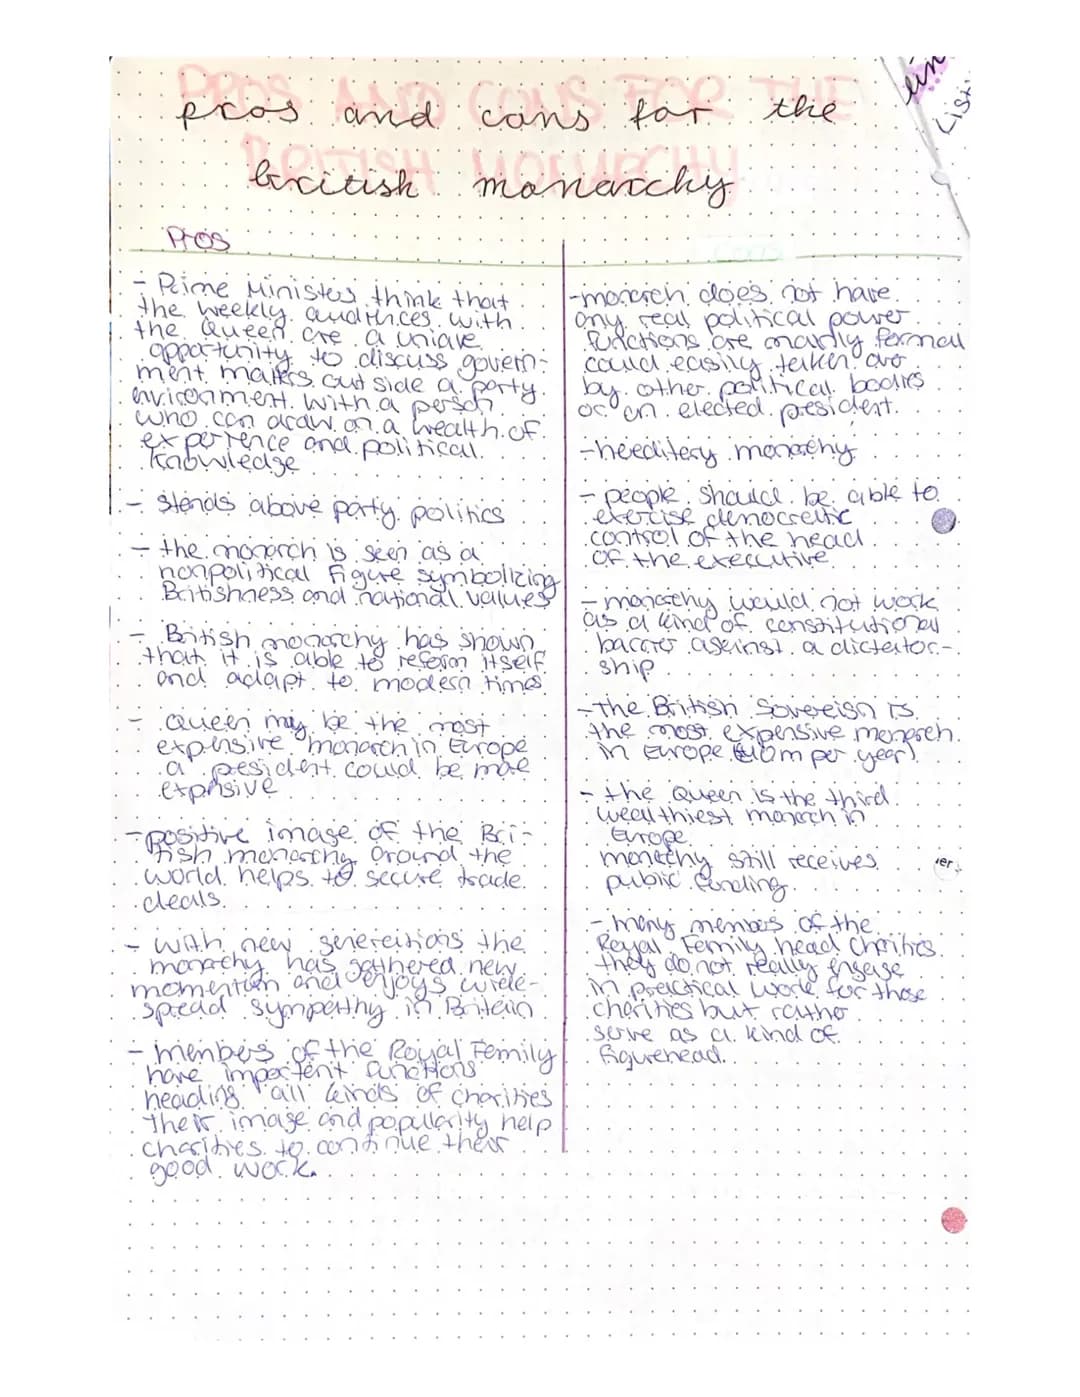 PROS AND CONS FOR THE
BRITISH MONARCHY
pros and cons for the
british monarchy
ein
List
Pros
- Prime Ministers think that
the weekly audinces with
the Queen are a unique
opportunity to discuss govern-
ment matters outside a party
environment. with a person
who can draw on a wealth of
experience and political
knowledge
- stands above party politics
- the monarch is seen as a
nonpolitical figure symbolizing
Britishness and national values
- British monarchy has shown
that it is able to reform itself
and adapt to modern times
- Queen may be the most
expensive monarch in Europe
a president could be more
expnsive
- positive image of the Bri-
tish monarchy around the
world helps to secure trade
deals.
- with new generations the
monarchy has gathered new
momentum and enjoys wide-
spread sympathy in Britain
- members of the Royal Family
have important functions
heading all kinds of charities
Their image and popularity help
charities to continue their
good work.
Cons
- monarch does not have
any real political power
functions are mainly formal
could easily taken over
by other political bodies
or an elected president.
- hereditery monarchy
- people should be able to
exercise democratic
control of the head
of the executive
- monarchy would not work
as a kind of constitutional
barrier against a dictator-
ship
- the British Sovereign is
the most expensive monarch
in Europe (40m per year)
- the Queen is the third
wealthiest monarch in
Europe
monarchy still receives
public funding.
- many members of the
Royal Family head charities
they do not really engage
in practical work for those
charities but rather
serve as a kind of
figurehead.
ver